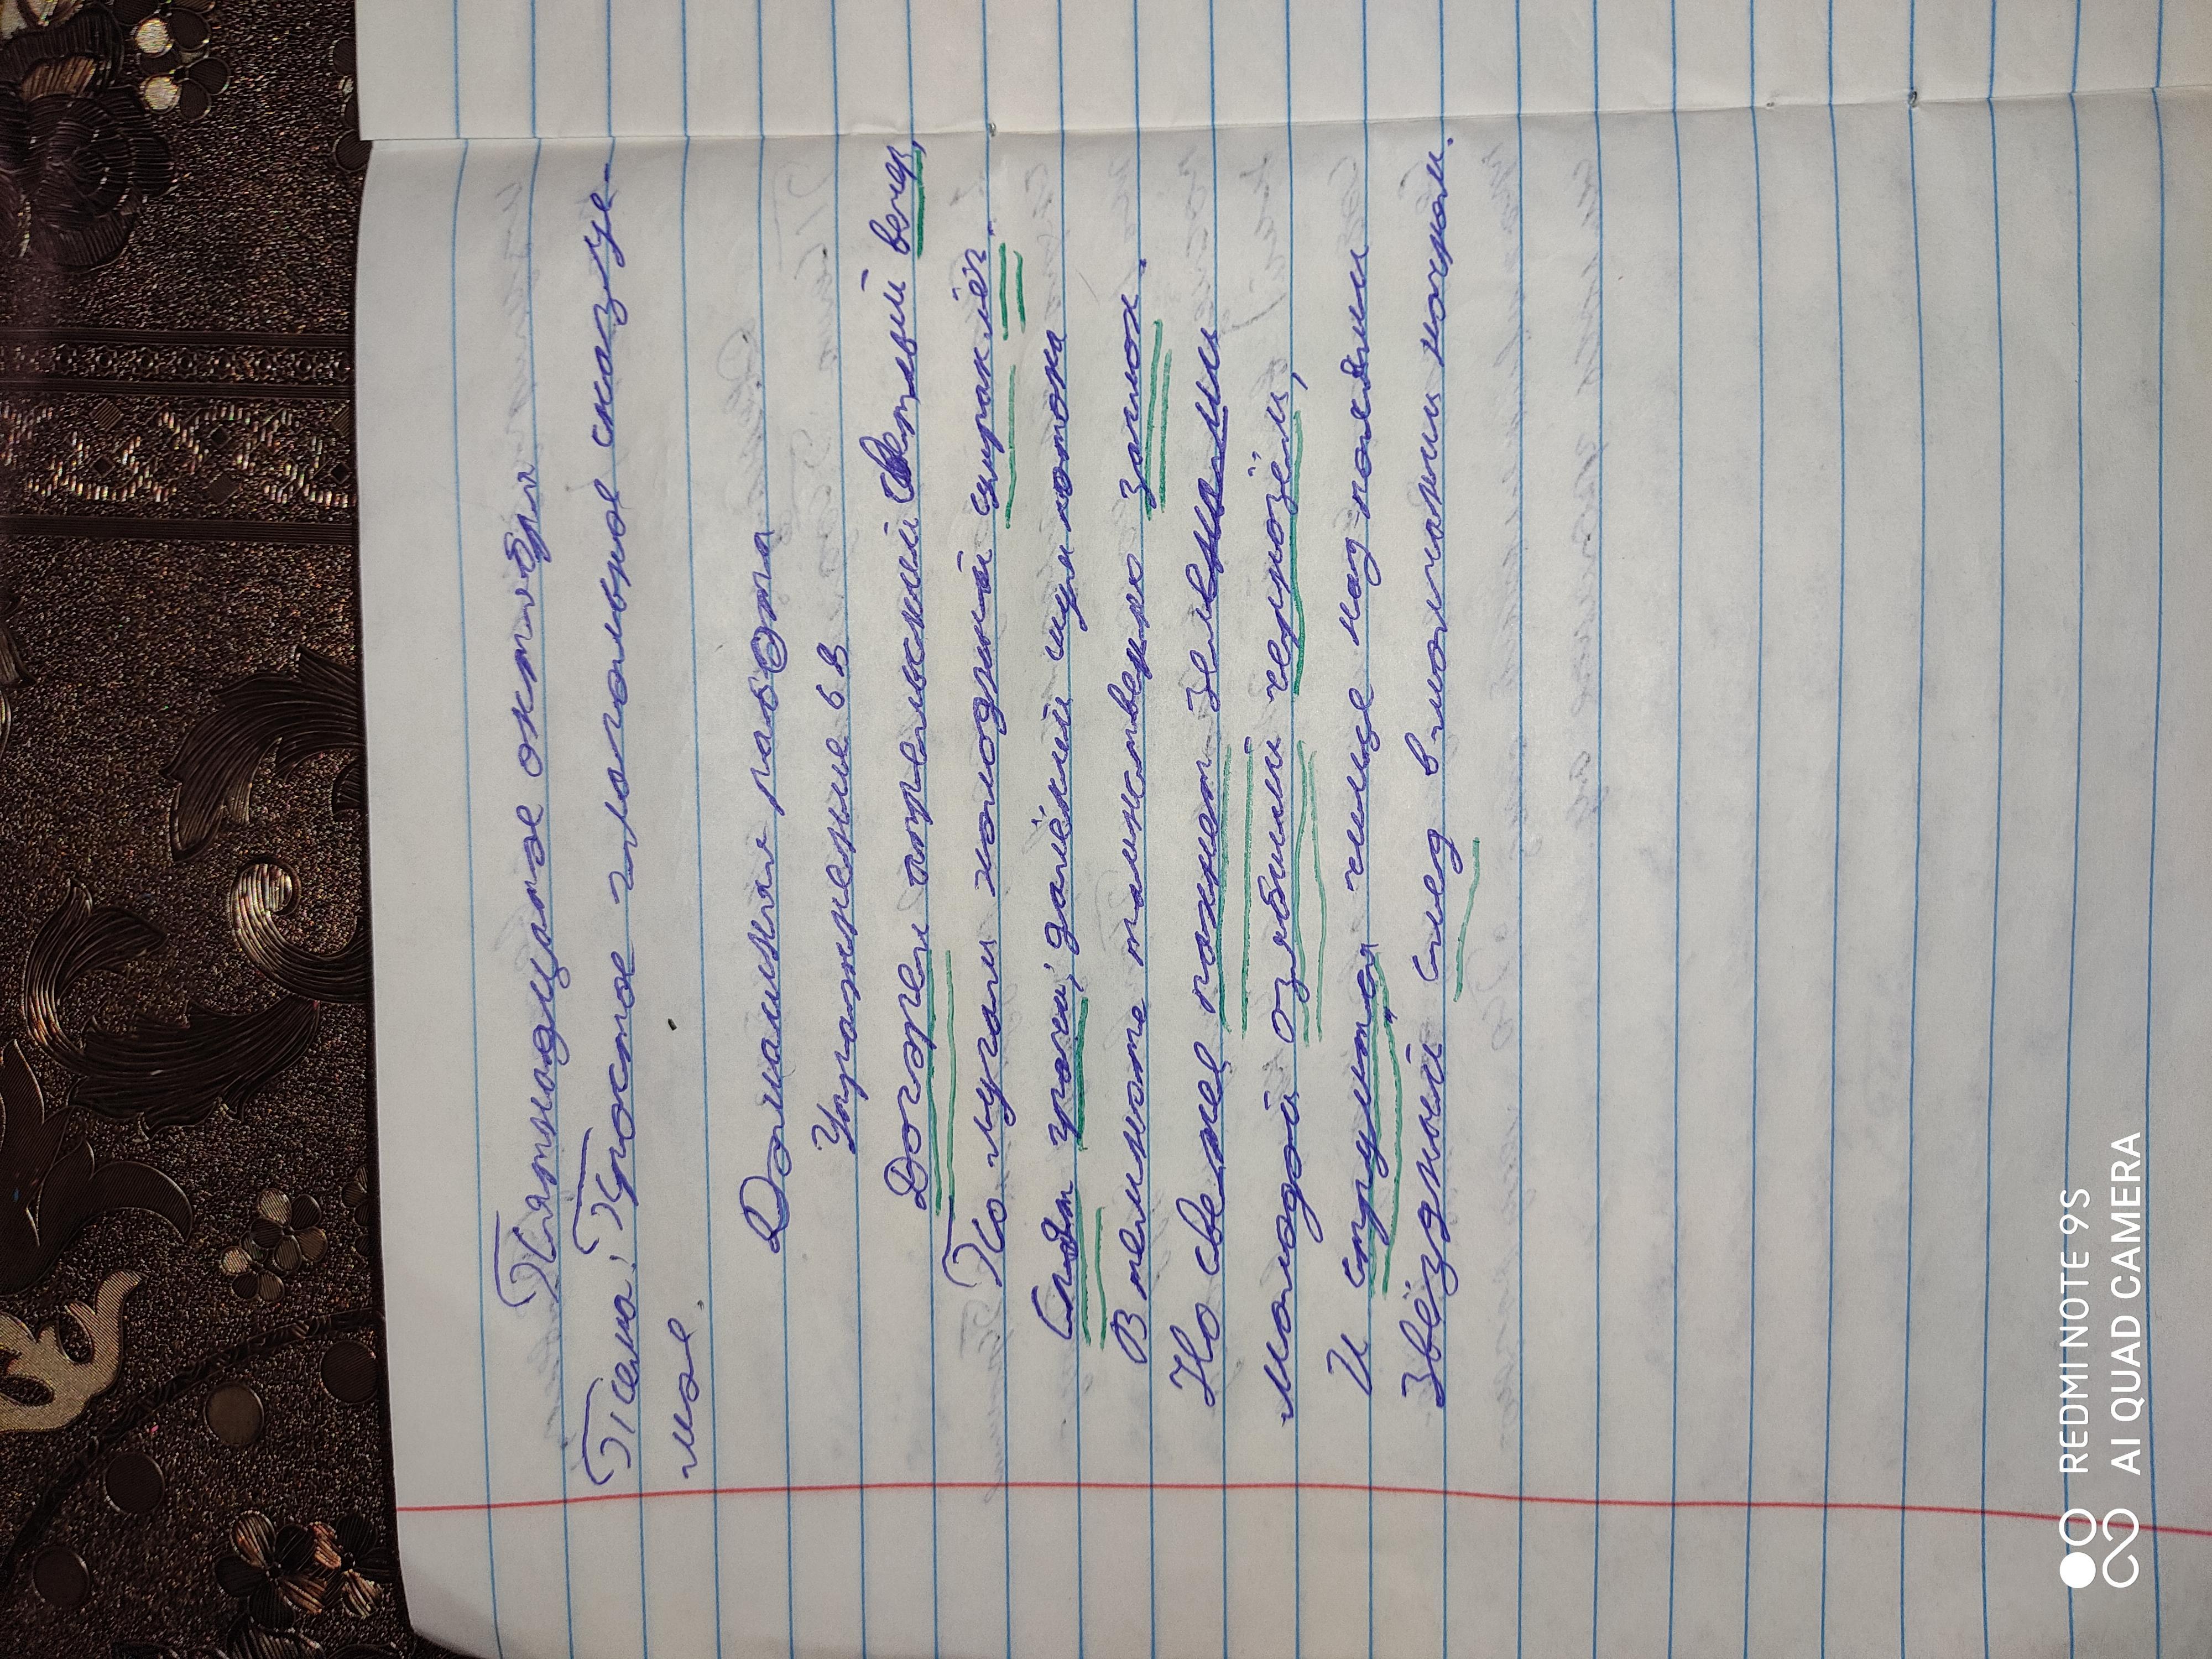 Пятнодцатое октября
Тема: Простое глагольное сказуе-
мое.
Домашняя работа
Упражнение 68
Догарел апрельский светлый вечер,
По лугам холодный сумрак лёг.
Спят грачи; далёкий шум потока
В темноте таинственно заглох.
Но свежее пахнет зеленями
Молодой озябший чернозём,
И струится чище над полями
Звёздный след в молчании ночном.
REDMI NOTE 9S
AI QUAD CAMERA